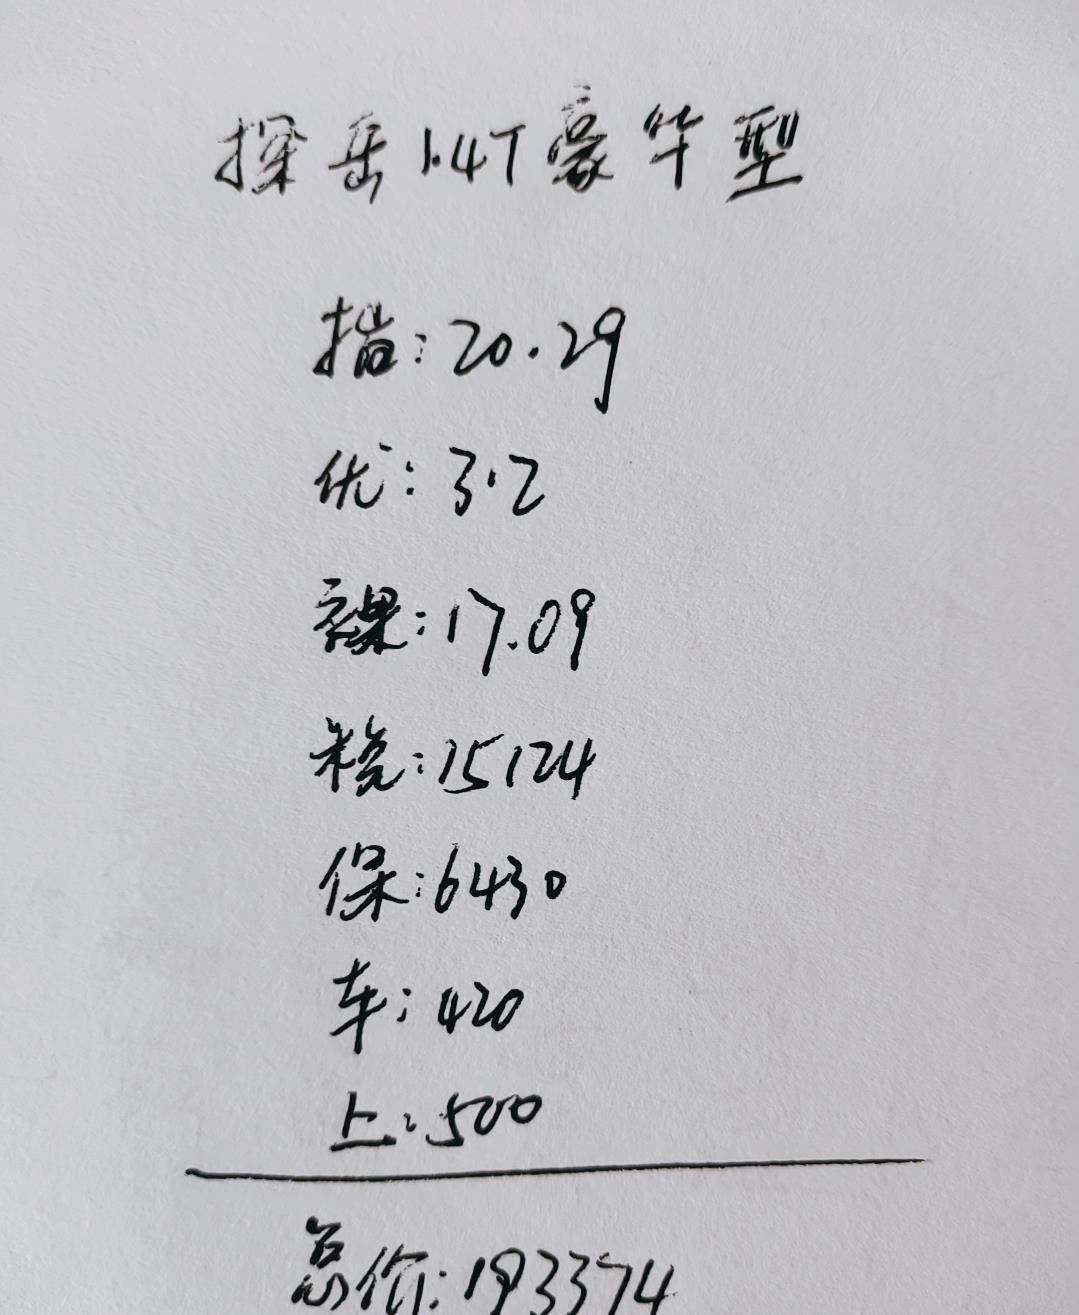 探岳1.4T豪华型
指:20.29
优:3.2
裸:17.09
税:15124
保:6430
车:420
上:500
总价:193374